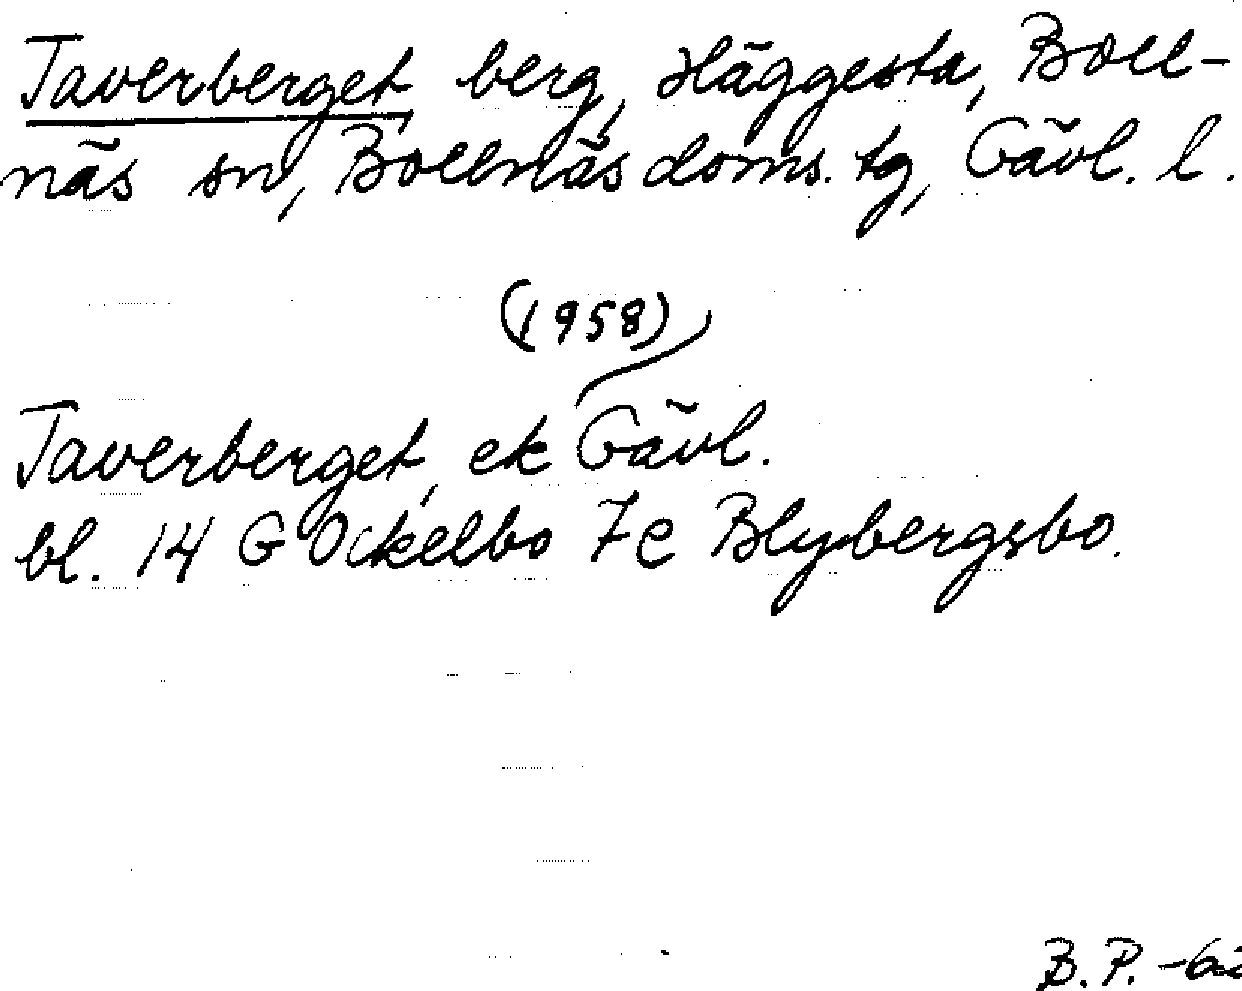 Taverberget, berg, Häggesta, Boll-
näs sn, Bollnäs doms. tg, Gävl. l.
(1958)
Taverberget, ek Gävl.
bl. 14 G Ockelbo 7 e Blybergsbo.
B. P.